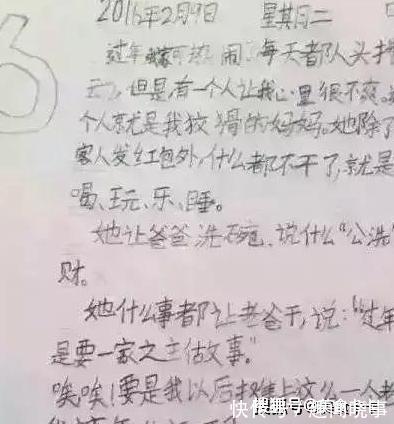 2016年2月9日 星期二
过年可热闹了每天都队头
云,但是有一个人让我心里很不爽。
个人就是我狡猾的妈妈。她除了
家人发红包外,什么都不干了,就是
喝、玩、乐、睡。
她让爸爸洗碗,说什么“公洗
财。
她什么事都让老爸干,说:“过年
是要一家之主做故事。”
唉,唉!要是我以后找上这么一个老
搜狐号@美食
快传号